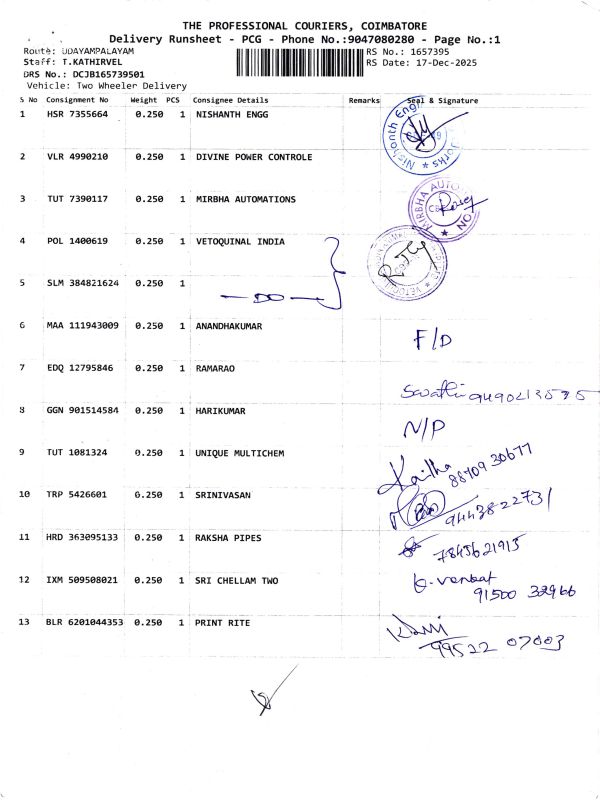 THE PROFESSIONAL COURIERS, COIMBATORE
Delivery Runsheet - PCG - Phone No.:9047080280 - Page No.:1
Route: UDAYAMPALAYAM
RS No.: 1657395
Staff: T.KATHIRVEL
RS Date: 17-Dec-2025
DRS No.: DCJB165739501
Vehicle: Two Wheeler Delivery
S No Consignment No Weight PCS Consignee Details Remarks Seal & Signature
1 HSR 7355664 0.250 1 NISHANTH ENGG
Nishanth Eng
2 VLR 4990210 0.250 1 DIVINE POWER CONTROLE
3 TUT 7390117 0.250 1 MIRBHA AUTOMATIONS
MIRBHA AUTO
4 POL 1400619 0.250 1 VETOQUINAL INDIA
5 SLM 384821624 0.250 1
DO
6 MAA 111943009 0.250 1 ANANDHAKUMAR F/D
7 EDQ 12795846 0.250 1 RAMARAO
Swathi
8 GGN 901514584 0.250 1 HARIKUMAR N/P
9 TUT 1081324 0.250 1 UNIQUE MULTICHEM
88709 30677
10 TRP 5426601 0.250 1 SRINIVASAN
9443822731
11 HRD 363095133 0.250 1 RAKSHA PIPES
7845621915
12 IXM 509508021 0.250 1 SRI CHELLAM TWO G. venkat
91500 32966
13 BLR 6201044353 0.250 1 PRINT RITE
99522 07003